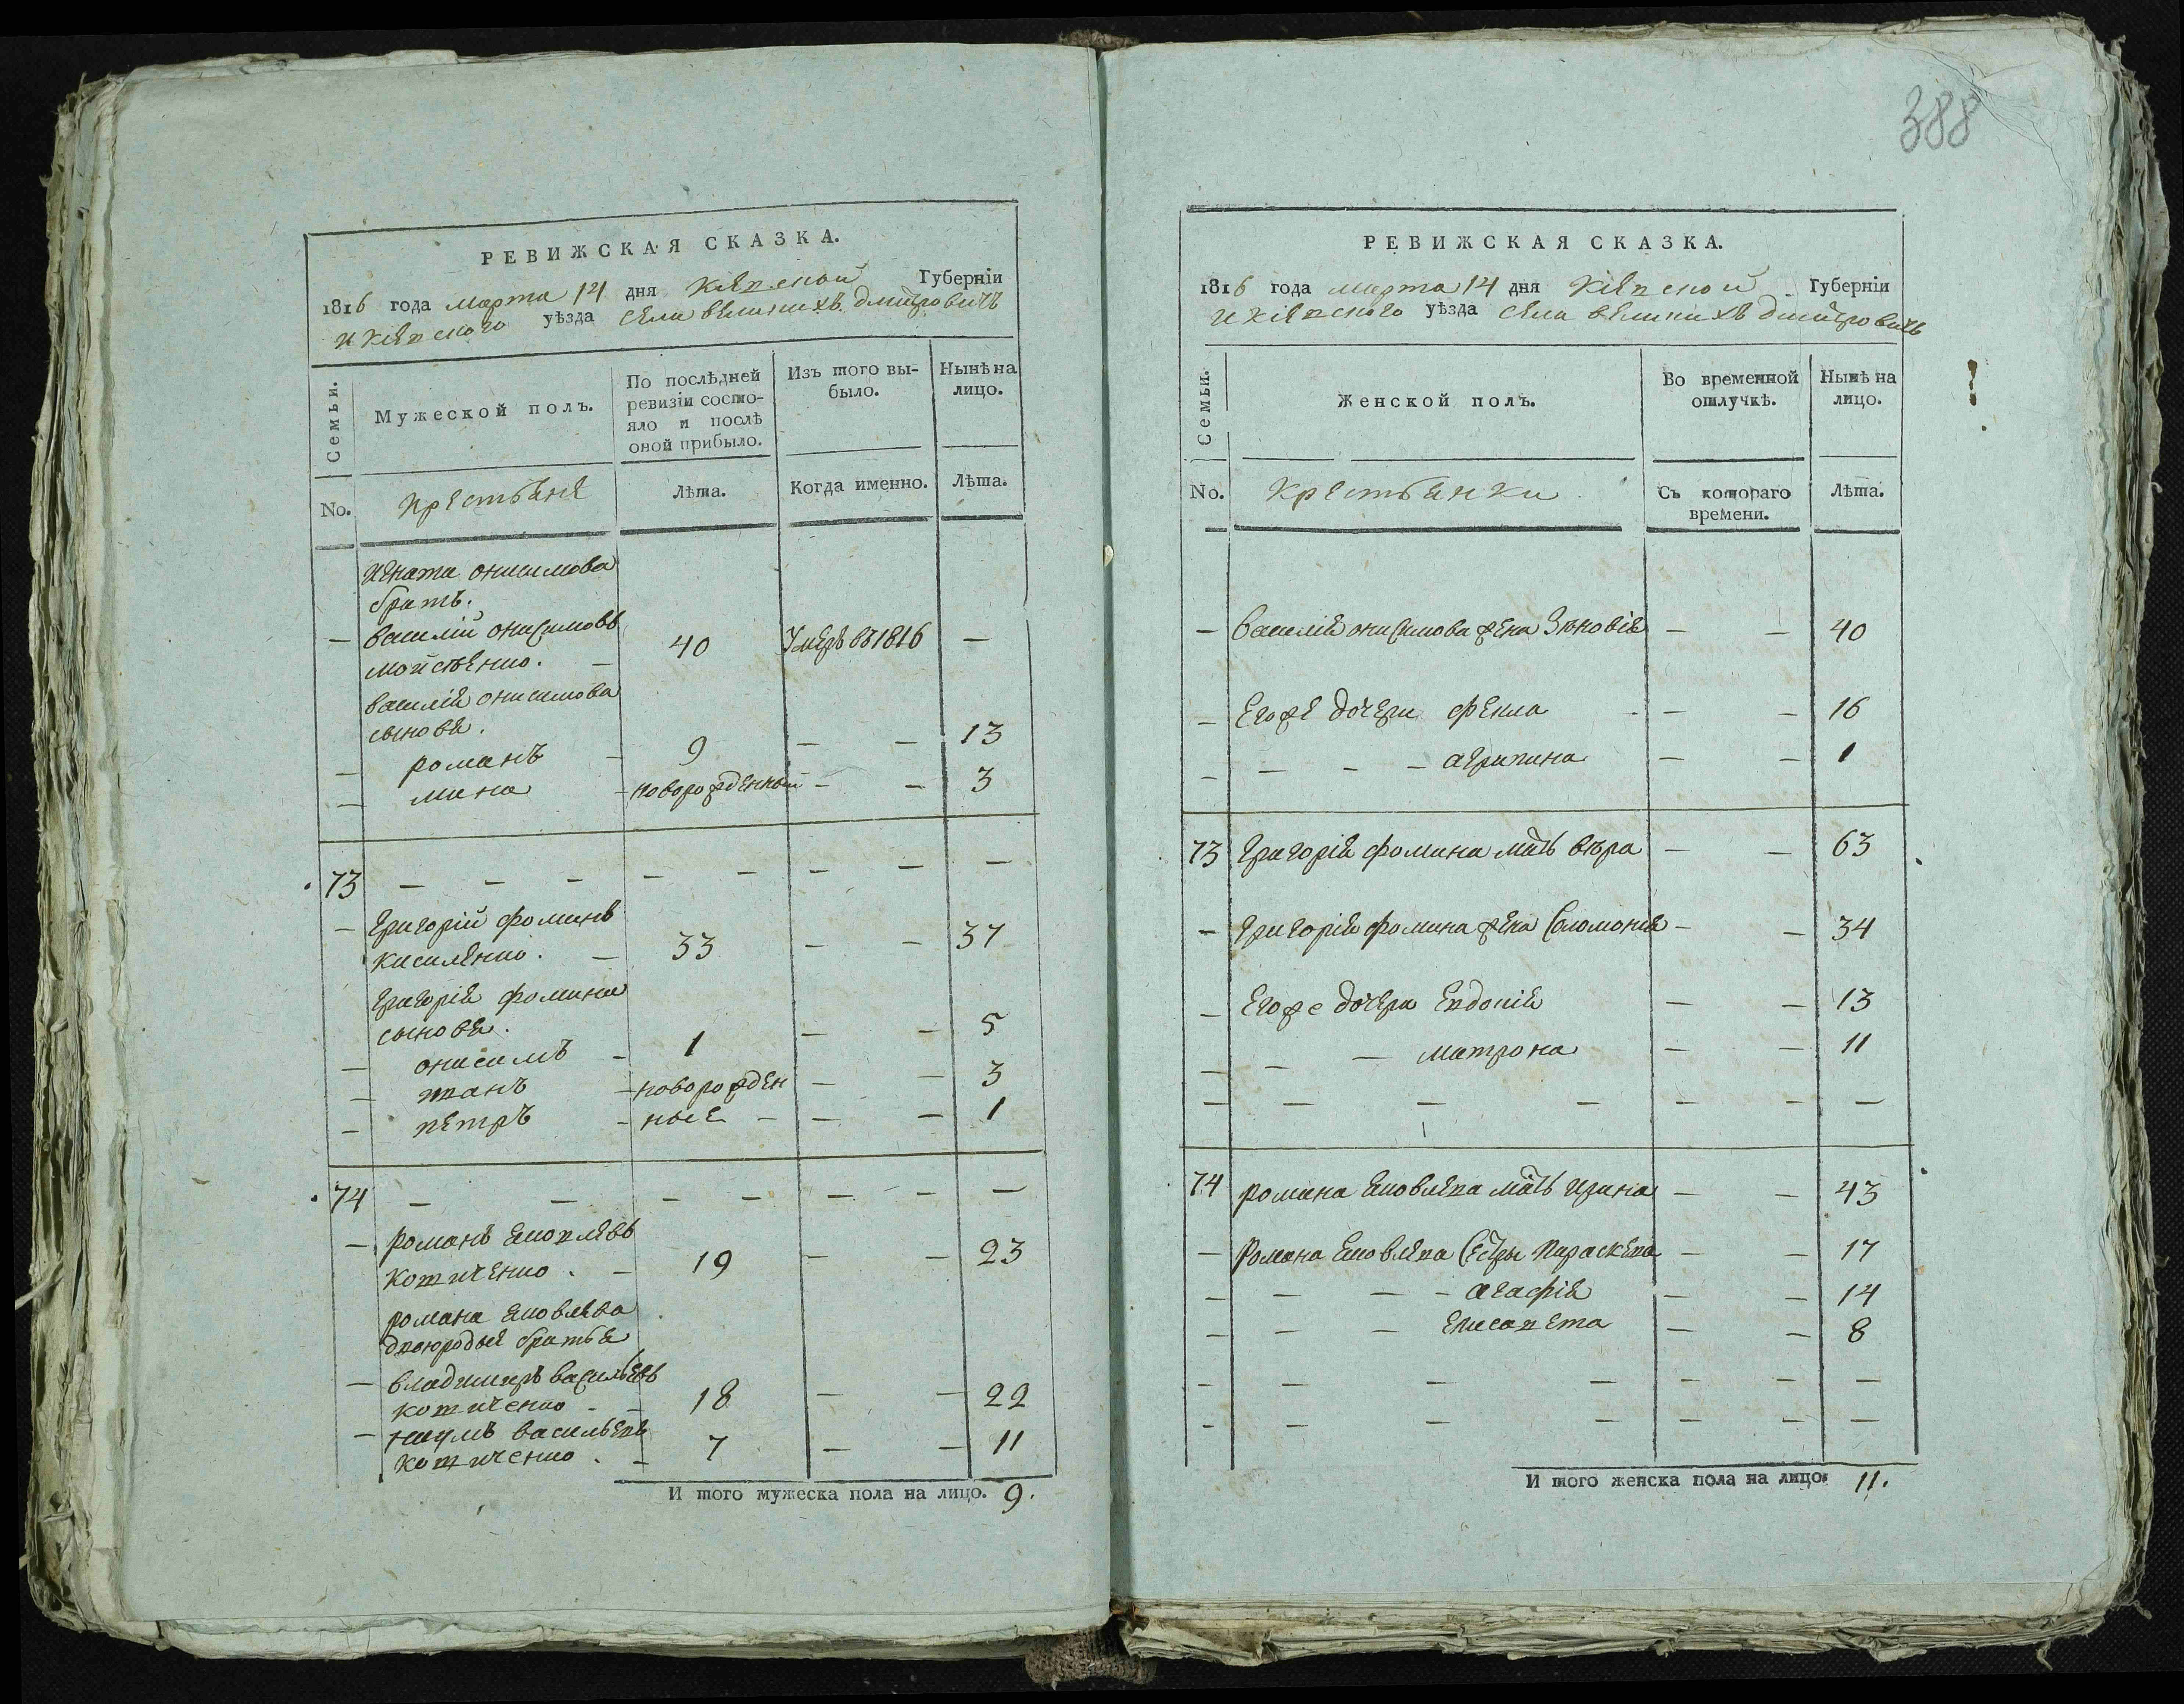 РЕВИЖСКАЯ СКАЗКА.
1816 года марта 14 дня Кіевской Губерніи
и Кіевского уѣзда села великихъ дмитровичъ
Семьи.
Мужеской полъ.
По послѣдней
ревизіи состо-
яло и послѣ
оной прибыло.
Изъ того вы-
было.
Нынѣ на
лицо.
No.
крестьяне
Лѣта.
Когда именно.
Лѣта.
игната онисимова
братъ.
— василій онисимовъ
мойсѣенко. — 40 Умеръ въ 1816 —
василія онисимова
сыновя.
— романъ — 9 — — 13
— мина — новорожденный — — 3
73 — — — — — — — —
— григорій фоминъ
кисиленко. — 33 — — 37
григорія фомина
сыновя.
— онисимъ — 1 — — 5
— иванъ — новорожден — — 3
— петръ — ные — — — 1
74 — — — — — — —
— романъ яковлевъ
котиченко. — 19 — — 23
романа яковлева
двоюродые братья
— владимиръ васильевъ
котиченко — — 18 — — 22
— наумъ васильевъ
котиченко. — 7 — — 11
И того мужеска пола на лицо. 9.
388
РЕВИЖСКАЯ СКАЗКА.
1816 года марта 14 дня Кіевской Губерніи
и кіевского уѣзда села великихъ дмитровичъ
Семьи.
Женской полъ.
Во временной
отлучкѣ.
Нынѣ на
лицо.
No.
Крестьянки
Съ котораго
времени.
Лѣта.
— василія онисимова жена Зѣновія — — 40
— Егоже дочери фекла — — 16
— — — — агрипина — — 1
73 григорія фомина мать вѣра — — 63
— григорія фомина жена Соломонія — — 34
— Егоже дочери Евдокія — — 13
— — — матрона — — 11
— — — — — — —
74 романа яковлева мать ирина — — 43
— Романа яковлева сестры параскева — — 17
— — — — агафія — — 14
— — — елисавета — — 8
— — — — — — —
— — — — — — —
И того женска пола на лицо. 11.